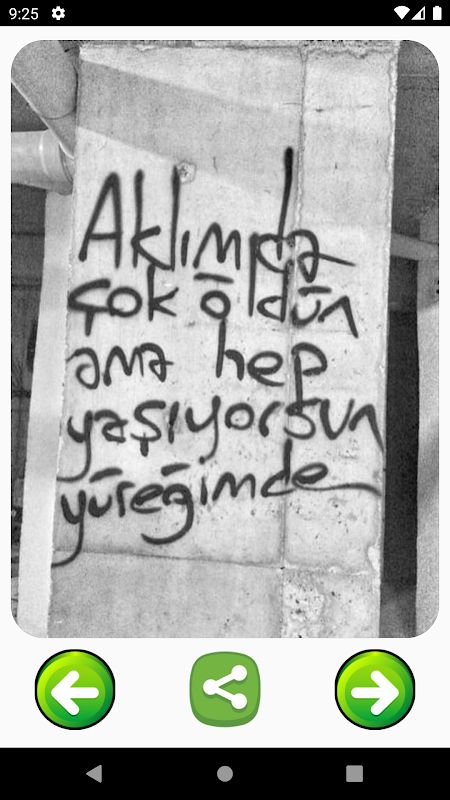 9:25
Aklımda
çok öldün
ama hep
yaşıyorsun
yüreğimde